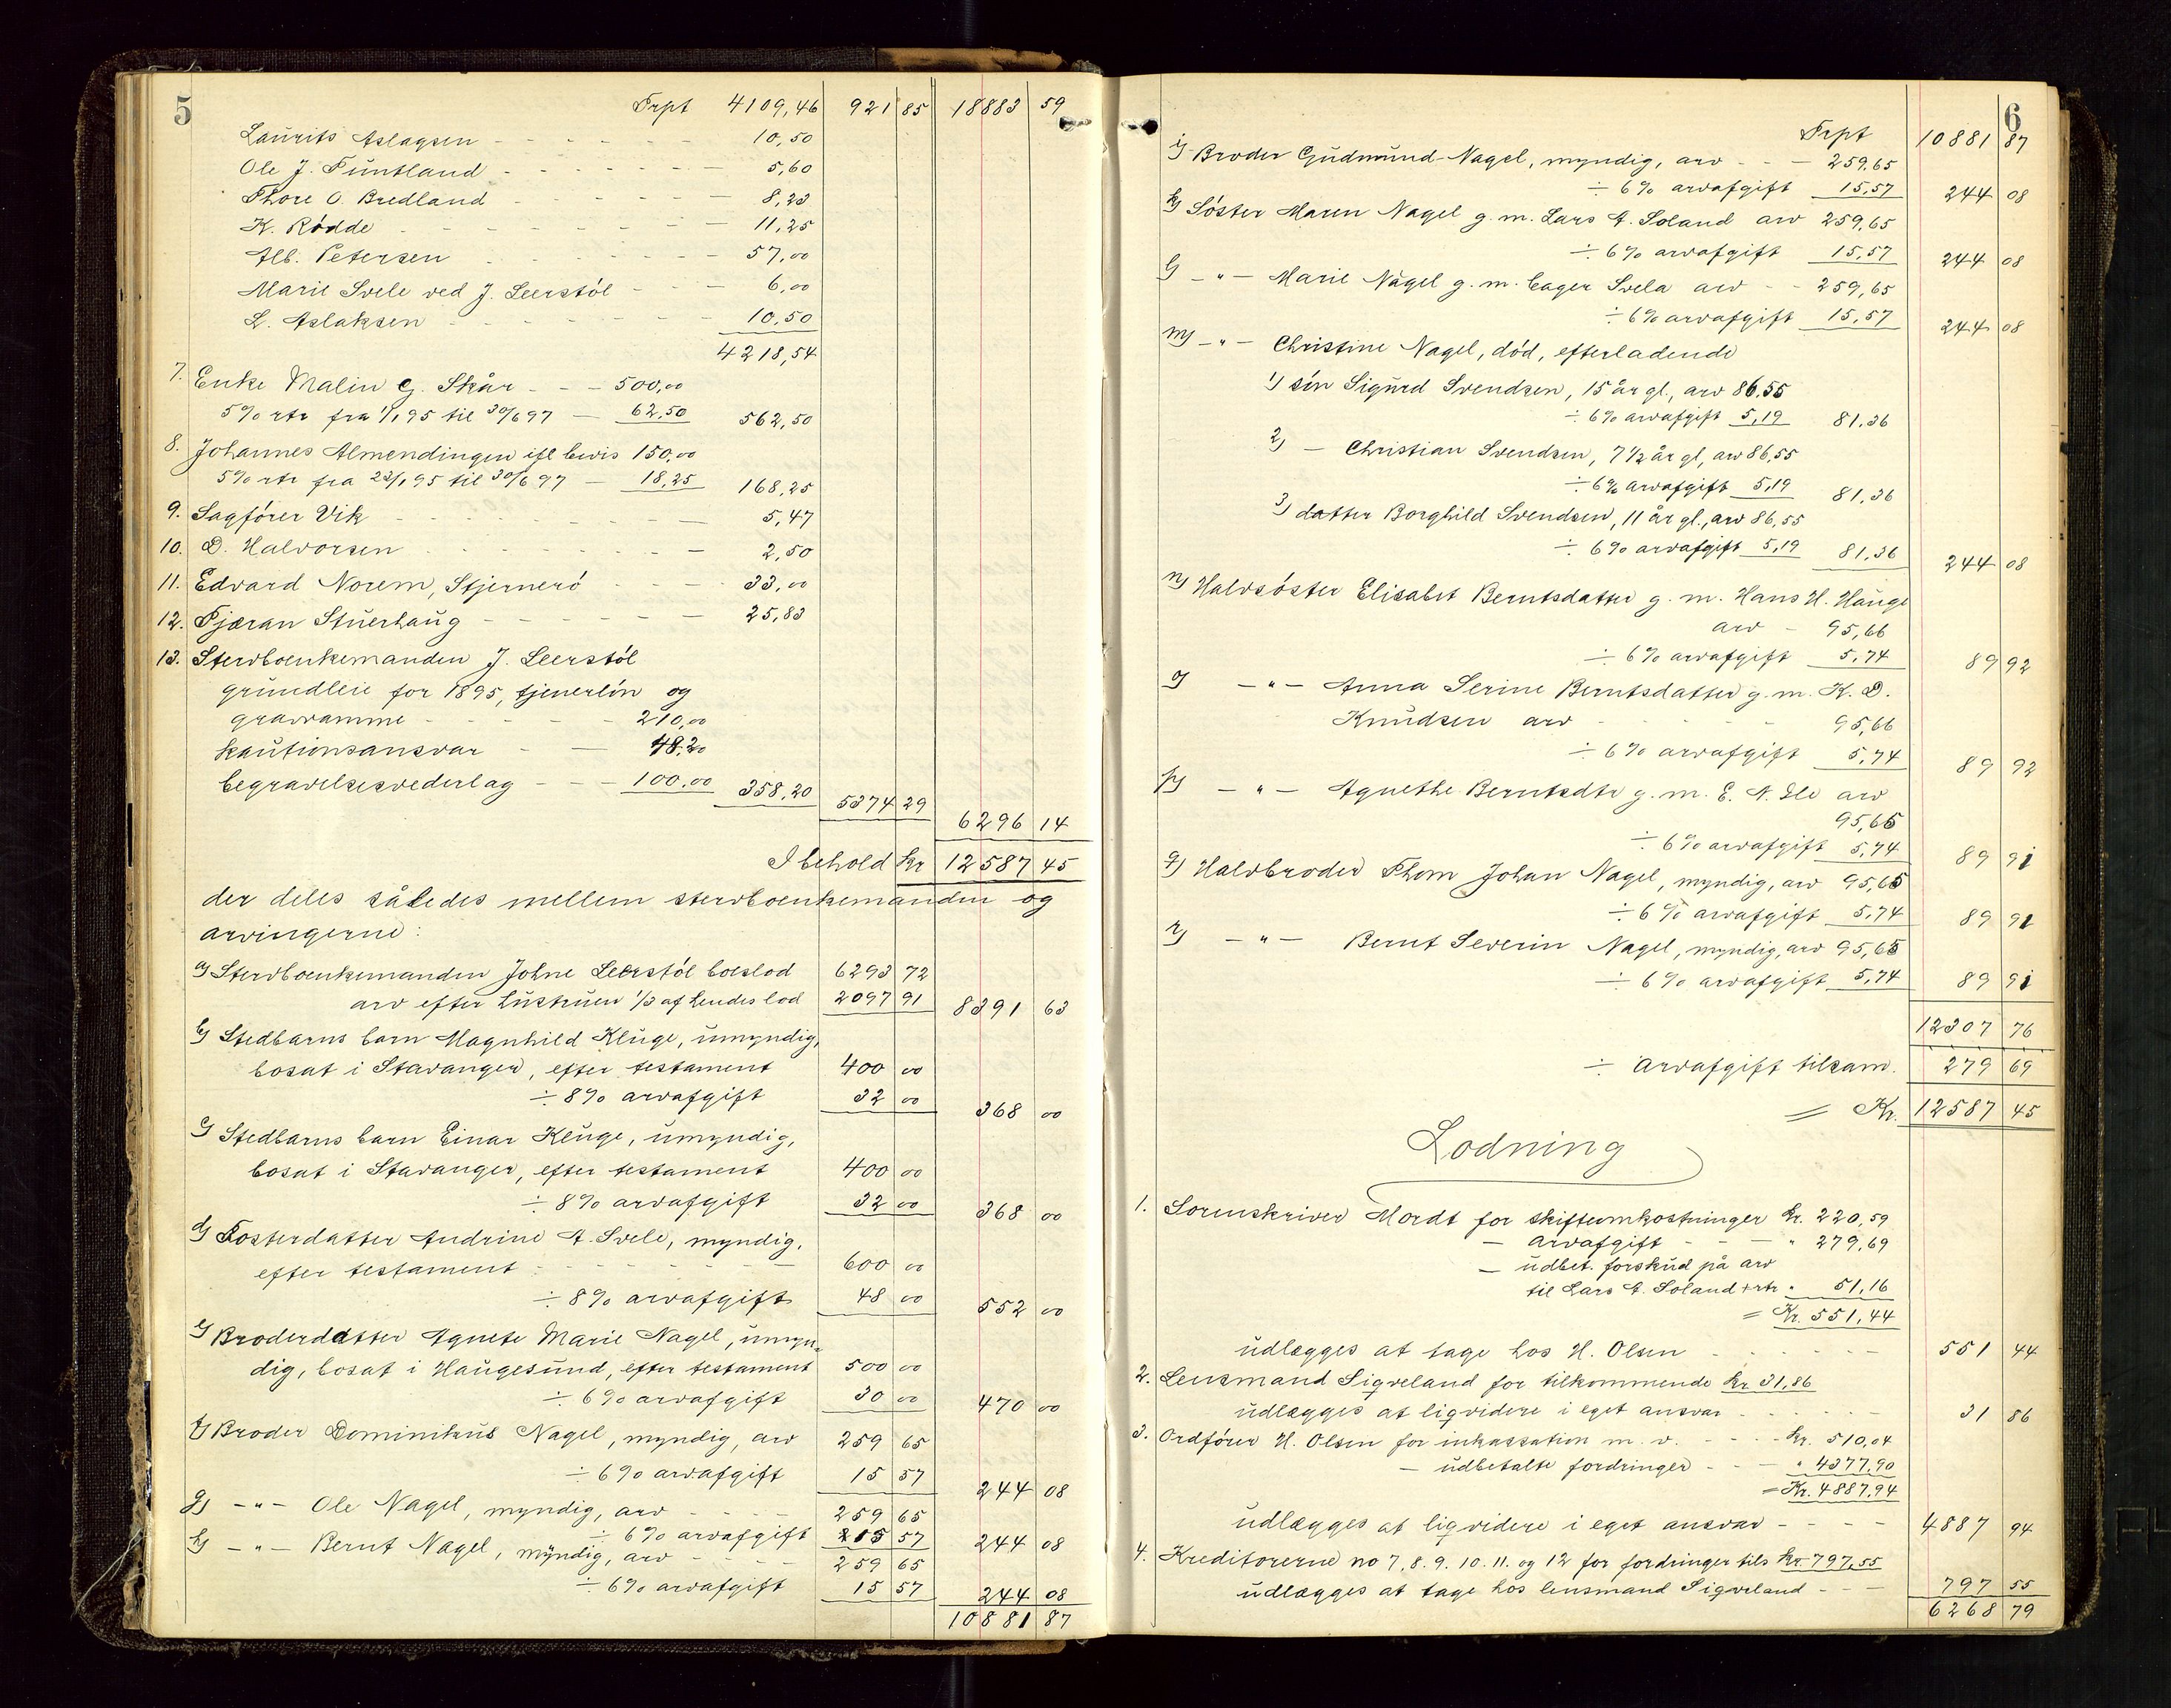 5
Frpt 4109,46 921 85 18883 59
Laurits Aslagsen - - - - 10,50
Ole J. Funtland - - - - 5,60
Thore O. Bredland - - - - 8,23
K. Rödde - - - - 11,25
Alb. Petersen - - - - 57,00
Marie Svele ved J. Leerstöl - - - 6,00
L. Aslaksen - - - - 10,50
4218,54
7. Enke Malin G. Skår - - - 500,00
5% rtr fra 1/1 95 til 30/6 97 — 62,50 562,50
8. Johannes Almendingen ifl bevis 150,00
5% rtr fra 23/1 95 til 30/6 97 — 18,25 168,25
9. Sagförer Vik - - - - 5,47
10. D. Halvorsen - - - - 2,50
11. Edvard Norem, Stjernerö - - - 33,00
12. Fjæran Stuerhaug - - - - 25,83
13. Stervboenkemanden J. Leerstöl
grundleie for 1895, tjenerlön og
gravramme - - - - 210,00
kautionsansvar - — 48,20
begravelsesvederlag - - - 100,00 358,20 5374 29
6296 14
I behold kr 12587 45
der deles således mellem stervboenkemanden og
arvingerne:
a) Stervboenkemanden Johne Leerstöl boeslod 6293 72
arv efter hustruen 1/3 af hendes lod 2097 91 8391 63
b) Stedbarns barn Magnhild Kluge, umyndig,
bosat i Stavanger, efter testament 400 00
÷ 8% arvafgift 32 00 368 00
c) Stedbarns barn Einar Kluge, umyndig,
bosat i Stavanger, efter testament 400 00
÷ 8% arvafgift 32 00 368 00
d) Fosterdatter Andrine A. Svele, myndig,
efter testament - - - - 600 00
÷ 8% arvafgift 48 00 552 00
e) Broderdatter Agnete Marie Nagel, umyn-
dig, bosat i Haugesund, efter testament 500 00
÷ 6% arvafgift 30 00 470 00
f) Broder Dominikus Nagel, myndig, arv 259 65
÷ 6% arvafgift 15 57 244 08
g) - " - Ole Nagel, myndig, arv - - - - 259 65
÷ 6% arvafgift 15 57 244 08
h) - " - Bernt Nagel, myndig, arv - - - - 259 65
÷ 6% arvafgift 15 57 244 08
10881 87
6
Frpt 10881 87
i) Broder Gudmund Nagel, myndig, arv - - - 259,65
÷ 6% arvafgift 15,57 244 08
k) Söster Maren Nagel g. m. Lars A. Soland arv 259,65
÷ 6% arvafgift 15,57 244 08
l) - " - Marie Nagel g. m. Eager Svela arv - - 259,65
÷ 6% arvafgift 15,57 244 08
m) - " - Christine Nagel, död, efterladende
1) sön Sigurd Svendsen, 15 år gl., arv 86,55
÷ 6% arvafgift 5,19 81,36
2) — Christian Svendsen, 7 1/2 år gl, arv 86,55
÷ 6% arvafgift 5,19 81,36
3) datter Borghild Svendsen, 11 år gl., arv 86,55
÷ 6% arvafgift 5,19 81,36 244 08
n) Halvsöster Elisabet Berntsdatter g. m. Hans H. Hauge
arv - 95,66
÷ 6% arvafgift 5,74 89 92
o) - " - Anna Serine Berntsdatter g. m. K. D.
Knudsen arv - - - 95,66
÷ 6% arvafgift 5,74 89 92
p) - " - Agnethe Berntsdtr g. m. E. N. Ile arv
95,65
÷ 6% arvafgift 5,74 89 91
q) Halvbroder Thom Johan Nagel, myndig, arv 95,65
÷ 6% arvafgift 5,74 89 91
r) - " - Bernt Severin Nagel, myndig, arv 95,65
÷ 6% arvafgift 5,74 89 91
12307 76
÷ Arvafgift tilsam. 279 69
= Kr. 12587 45
Lodning
1. Sorenskriver Mordt for skifteomkostninger kr. 220,59
— arvafgift - - - " 279,69
— udbet. forskud på arv
til Lars A. Soland + rtr. " 51,16
= Kr. 551,44
udlægges at tage hos H. Olsen - - - - 551 44
2. Lensmand Sigveland for tilkommende kr 31,86
udlægges at liqvidere i eget ansvar - - - - 31 86
3. Ordförer H. Olsen for inkassation m. v. - - - kr. 510,04
— udbetalte fordringer - - - " 4377,90
= Kr. 4887,94
udlægges at liqvidere i eget ansvar - - - - 4887 94
4. Kreditorerne no 7, 8. 9. 10. 11. og 12 for fordringer tils kr. 797,55
udlægges at tage hos lensmand Sigveland - - - 797 55
6268 79